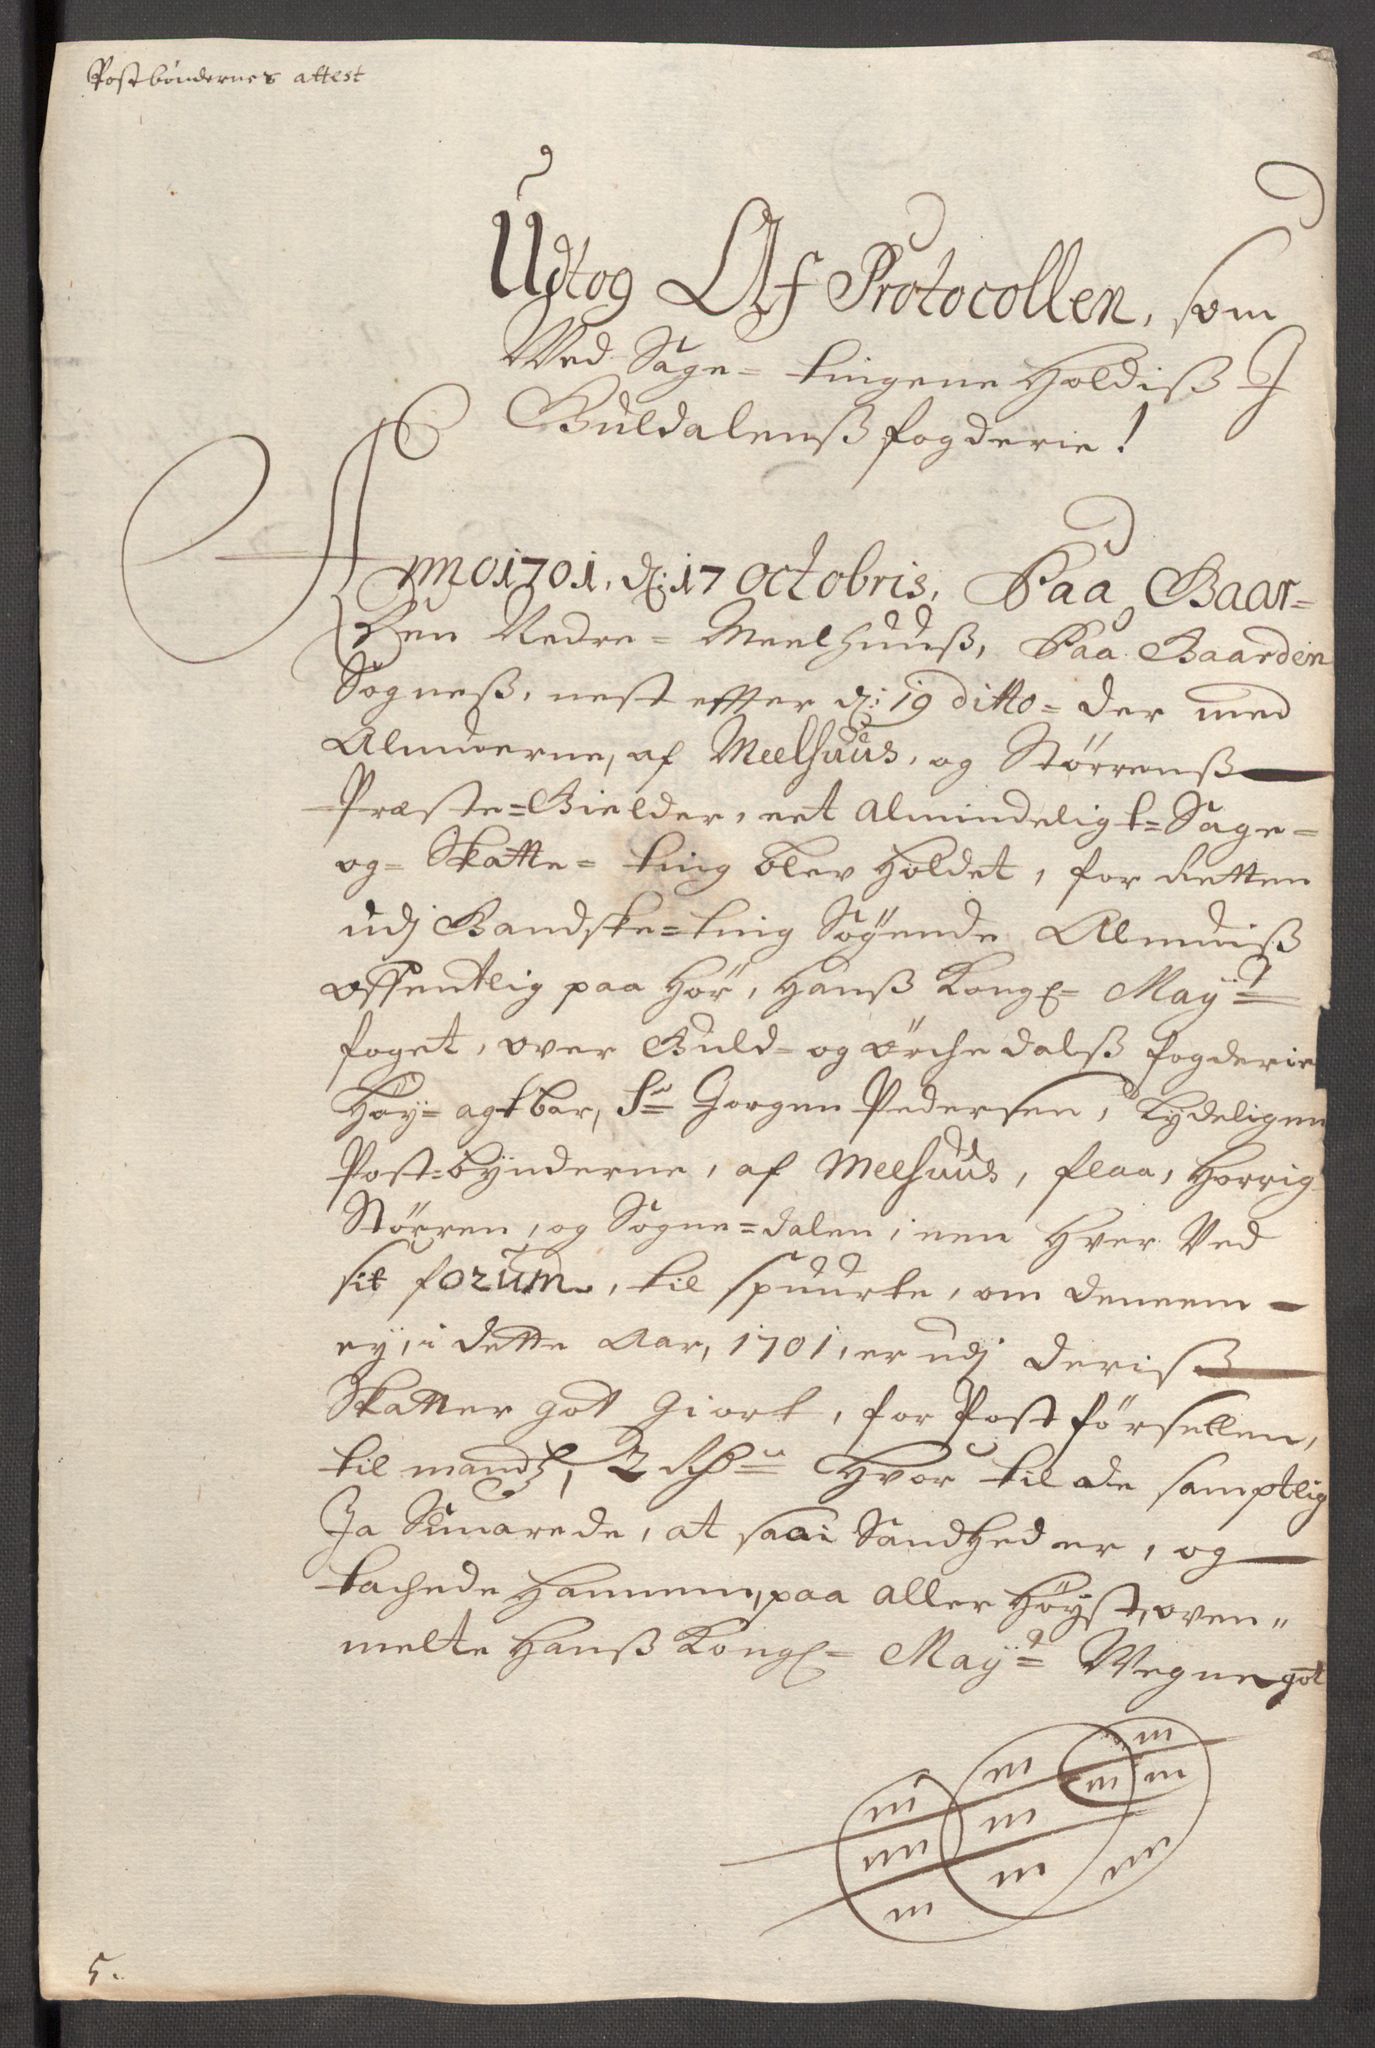 Postbøndernes attest
Udtog Af Protocollen, som
Ved Sage- tingene Holdiß I
Guldalenß fogderie!
Anno 1701, d: 17 octobris, Paa Gaar-
den Nedre- Meelhuuß, Paa Gaarden
Sogneß, nest effter d: 19 ditto- der med
Almuerne, af Meelhuus, og Störrenß
Præste-Gielder, eet almindeligt-Sage-
og- Skatte- ting blev Holdet, for Retten
udj Bandske-ting Söÿende Almuiß
offentlig paa hör, Hanß Kongl- Mayt
foget, over Guld- og örchedalß fogderie
Höy- agtbar, Sr Jörgen Pedersen, Lydeligen
Post-bynderne, af Meelhuus, flaa, Horrig
Störren, og Sogne-dalen, een Hver Ved
sit forum, til spuurte, om dennem
eÿ, i dette Aar, 1701, er udj deriß
Skatter got Giort, for Post försellen,
til mandtz, 2 Rdr Hvor til de samptlig
Ja Suarede, at saa i Sandhed er, og
tachede Hannem, paa aller Höÿst, oven"
melte Hanß Kongl- Mayt Wegne got
5.